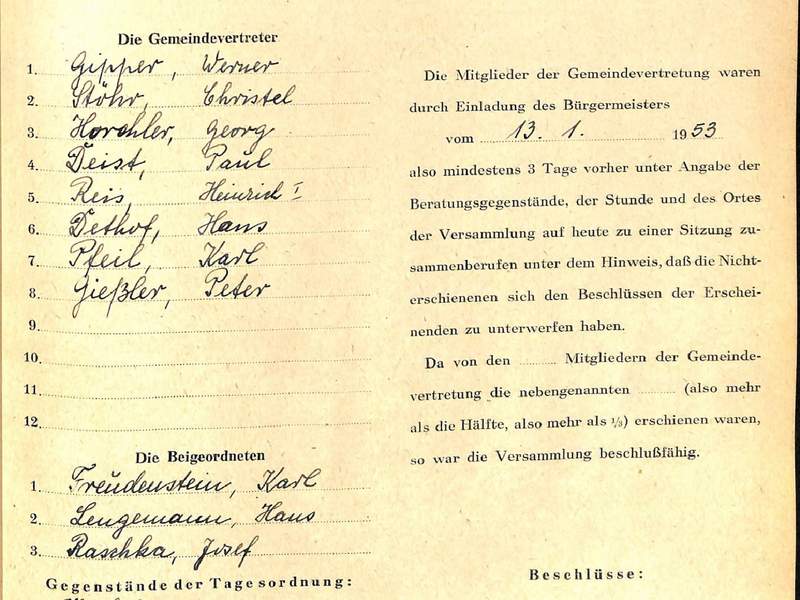 Die Gemeindevertreter
1. Gipper, Werner
2. Stöhr, Christel
3. Horchler, Georg
4. Deist, Paul
5. Reis, Heinrich I
6. Dethof, Hans
7. Pfeil, Karl
8. Gießler, Peter
9.
10.
11.
12.
Die Beigeordneten
1. Freudenstein, Karl
2. Lengemann, Hans
3. Raschka, Josef
Gegenstände der Tagesordnung:
Die Mitglieder der Gemeindevertretung waren
durch Einladung des Bürgermeisters
vom 13. 1. 1953
also mindestens 3 Tage vorher unter Angabe der
Beratungsgegenstände, der Stunde und des Ortes
der Versammlung auf heute zu einer Sitzung zu-
sammenberufen unter dem Hinweis, daß die Nicht-
erschienenen sich den Beschlüssen der Erschei-
nenden zu unterwerfen haben.
Da von den ........ Mitgliedern der Gemeinde-
vertretung die nebengenannten ........ (also mehr
als die Hälfte, also mehr als ⅓) erschienen waren,
so war die Versammlung beschlußfähig.
Beschlüsse: